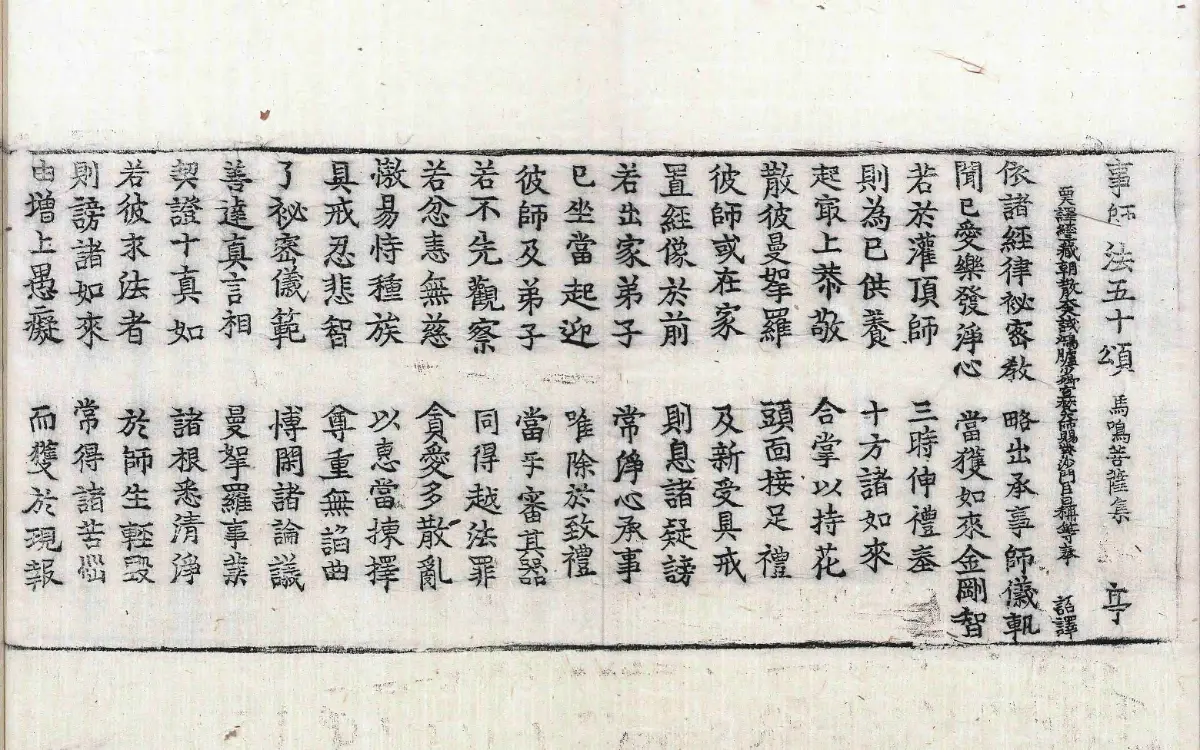 事師法五十頌 馬鳴菩薩集 亭
西天譯經三藏朝散大夫試鴻臚少卿宣梵大師賜紫沙門臣日稱等奉 詔譯
依諸經律祕密教 略出承事師儀軌
聞已愛樂發淨心 當獲如來金剛智
若於灌頂師 三時伸禮奉
則為已供養 十方諸如來
起㝡上恭敬 合掌以持花
散彼曼拏羅 頭面接足禮
彼師或在家 及新受具戒
置經像於前 則息諸疑謗
若出家弟子 常淨心承事
已坐當起迎 唯除於致禮
彼師及弟子 當乎審其器
若不先觀察 同得越法罪
若忿恚無慈 貪愛多散亂
憿易恃種族 以恵當揀擇
具戒忍悲智 尊重無諂曲
了祕密儀範 博閑諸論議
善達真言相 曼拏羅事業
契證十真如 諸根悉清淨
若彼求法者 於師生輕毀
則謗諸如來 常得諸苦惱
由增上愚癡 而獲於現報